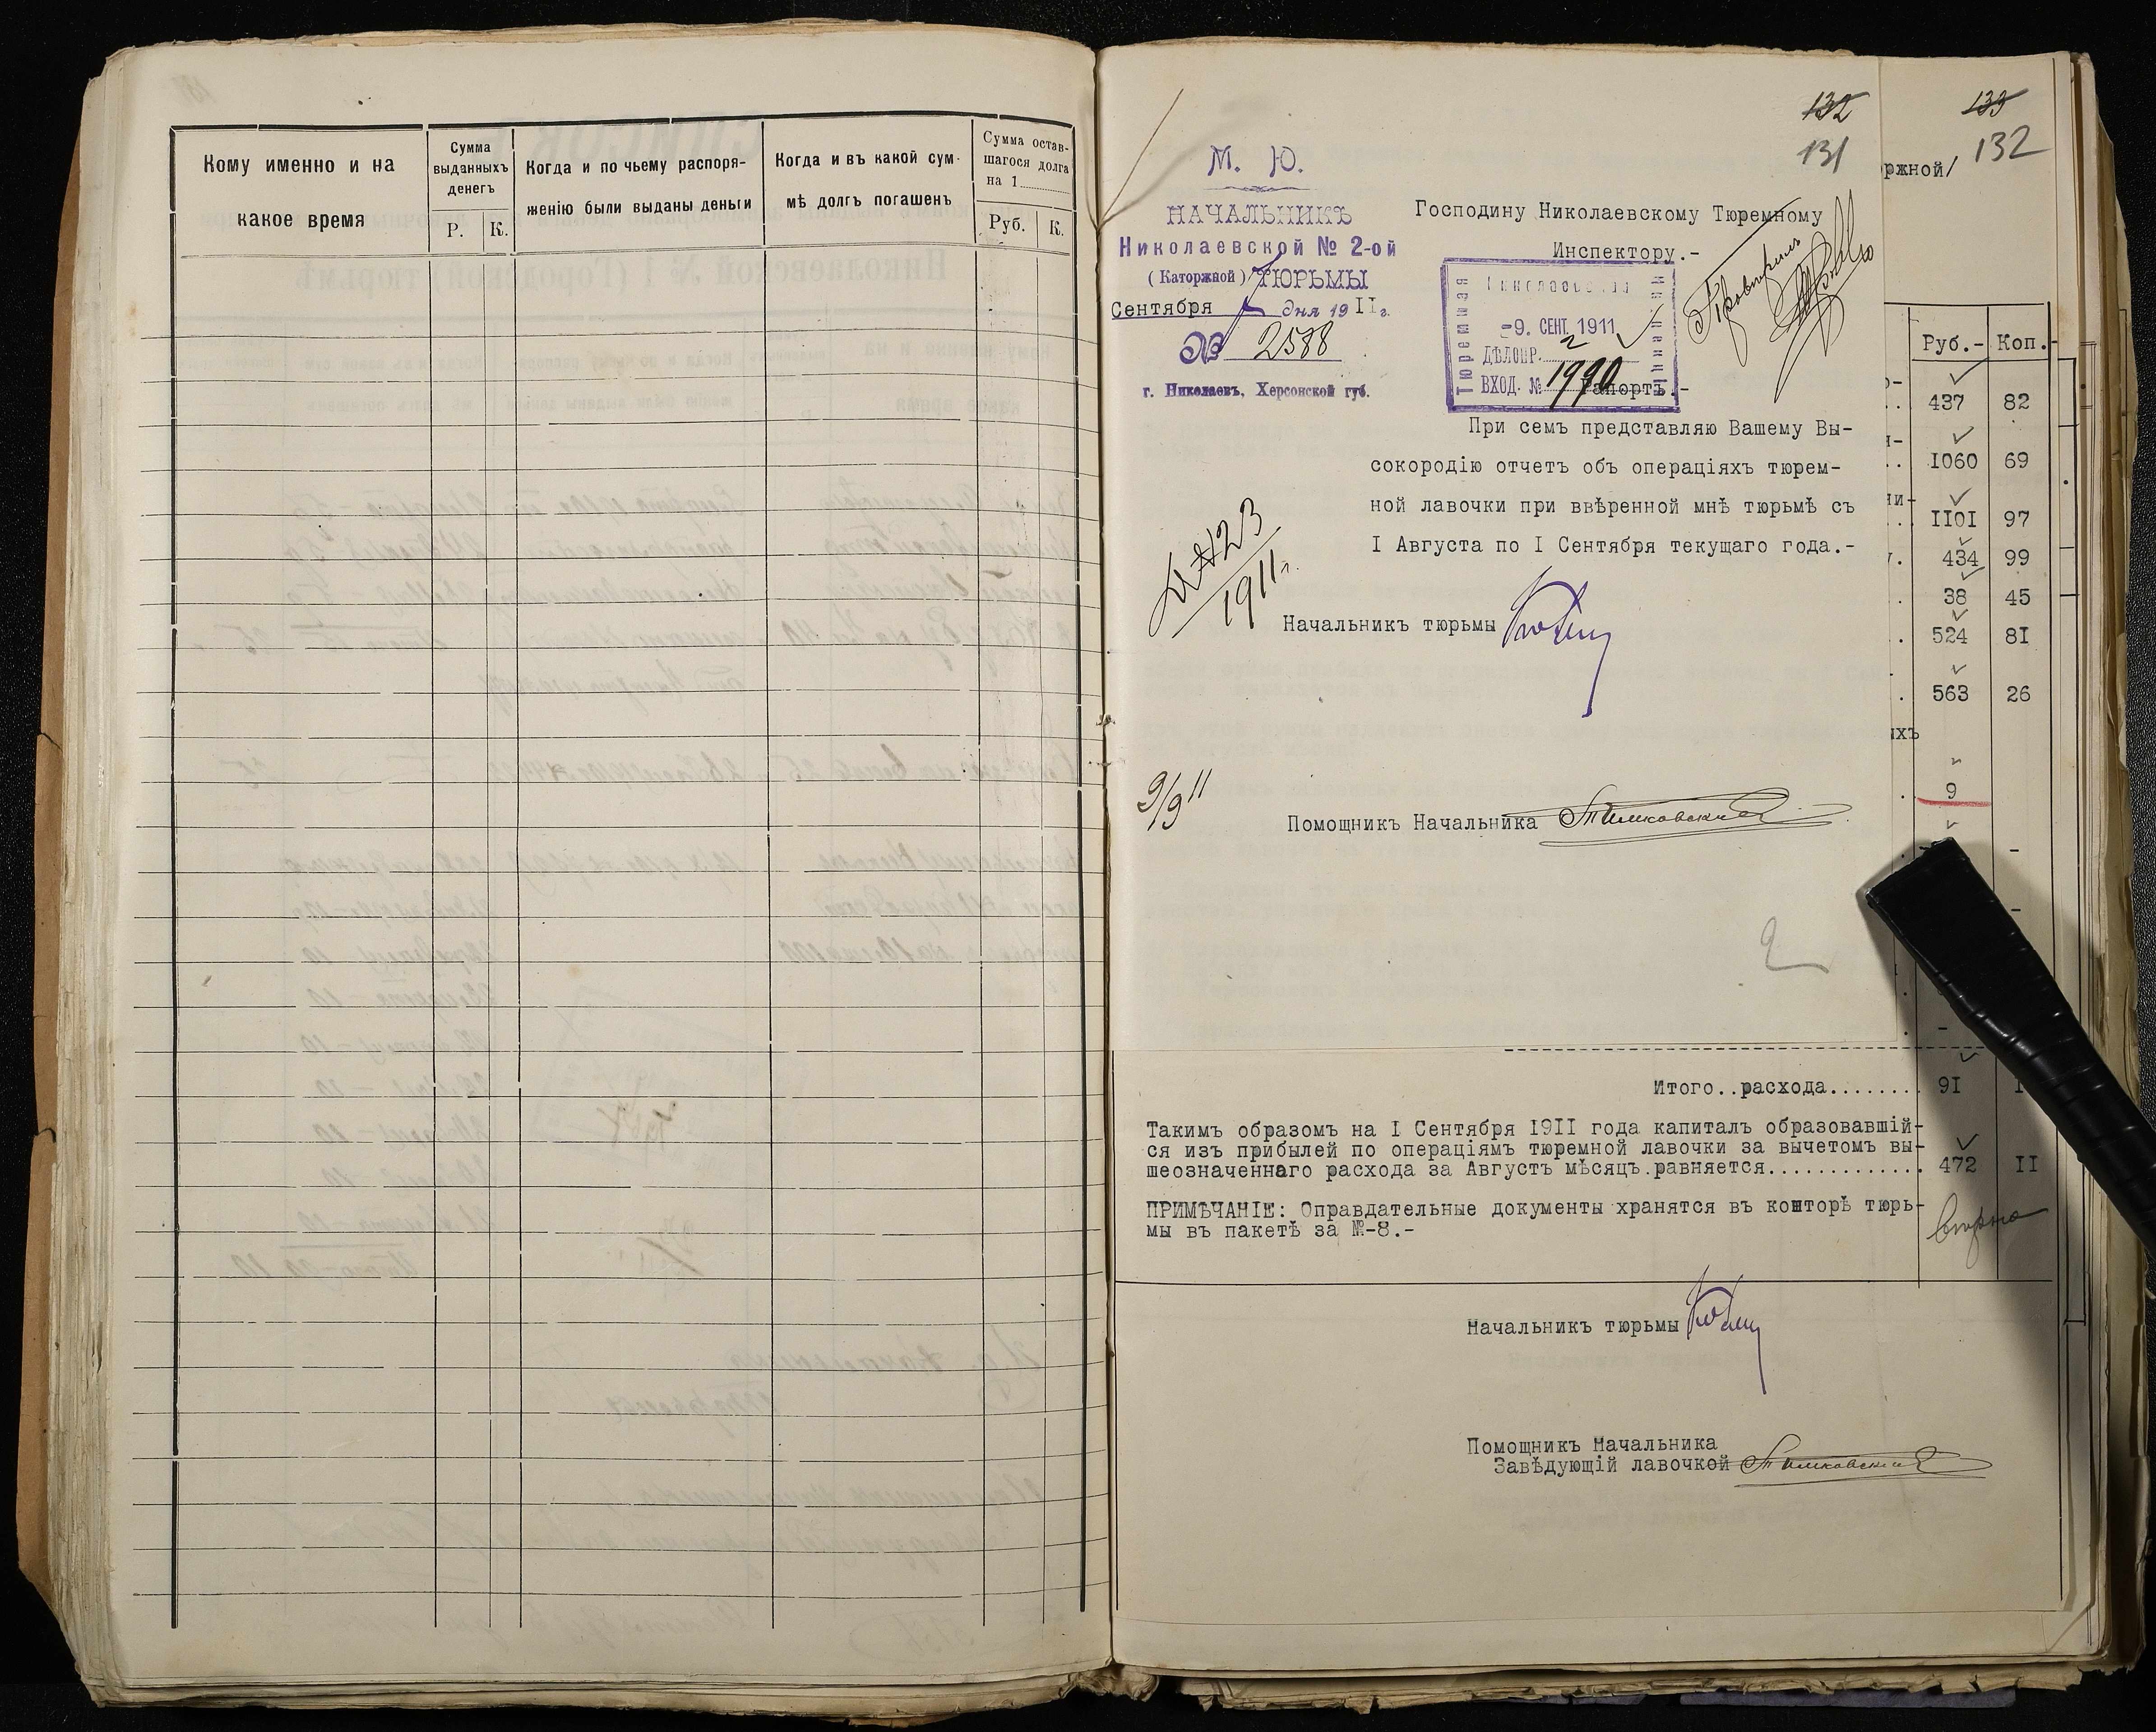 Кому именно и на
какое время
Сумма
выданныхъ
денегъ
Р. К.
Когда и по чьему распоря-
женію были выданы деньги
Когда и въ какой сум-
мѣ долгъ погашенъ
Сумма остав-
шагося долга
на 1
Руб. К.
132
131
М. Ю.
НАЧАЛЬНИКЪ
Николаевской № 2-ой
(Каторжной) ТЮРЬМЫ
Сентября 7 дня 1911 г.
№ 2588
г. Николаевъ, Херсонской губ.
Господину Николаевскому Тюремному
Инспектору.-
Николаевская
Тюремная
-9. СЕНТ. 1911
ДѢЛОПР. 2
ВХОД. № 1990
Рапортъ.-
При семъ представляю Вашему Вы-
сокородію отчетъ объ операціяхъ тюрем-
ной лавочки при ввѣренной мнѣ тюрьмѣ съ
I Августа по I Сентября текущаго года.-
1911 г.
Начальникъ тюрьмы
9/9 11
Помощникъ Начальника
2
133
132
ржной/
Руб.- Коп.-
437 82
1060 69
ни-
1101 97
434 99
38 45
524 8I
563 26
ихъ
9
Итого..расхода........ 9I
Такимъ образомъ на I Сентября I9II года капиталъ образовавшій-
ся изъ прибылей по операціямъ тюремной лавочки за вычетомъ вы-
шеозначеннаго расхода за Августъ мѣсяцъ.равняется............. 472 II
ПРИМѢЧАНІЕ: Оправдательные документы хранятся въ конторѣ тюрь-
мы въ пакетѣ за №-8.-
Начальникъ тюрьмы
Помощникъ Начальника
Завѣдующій лавочкой